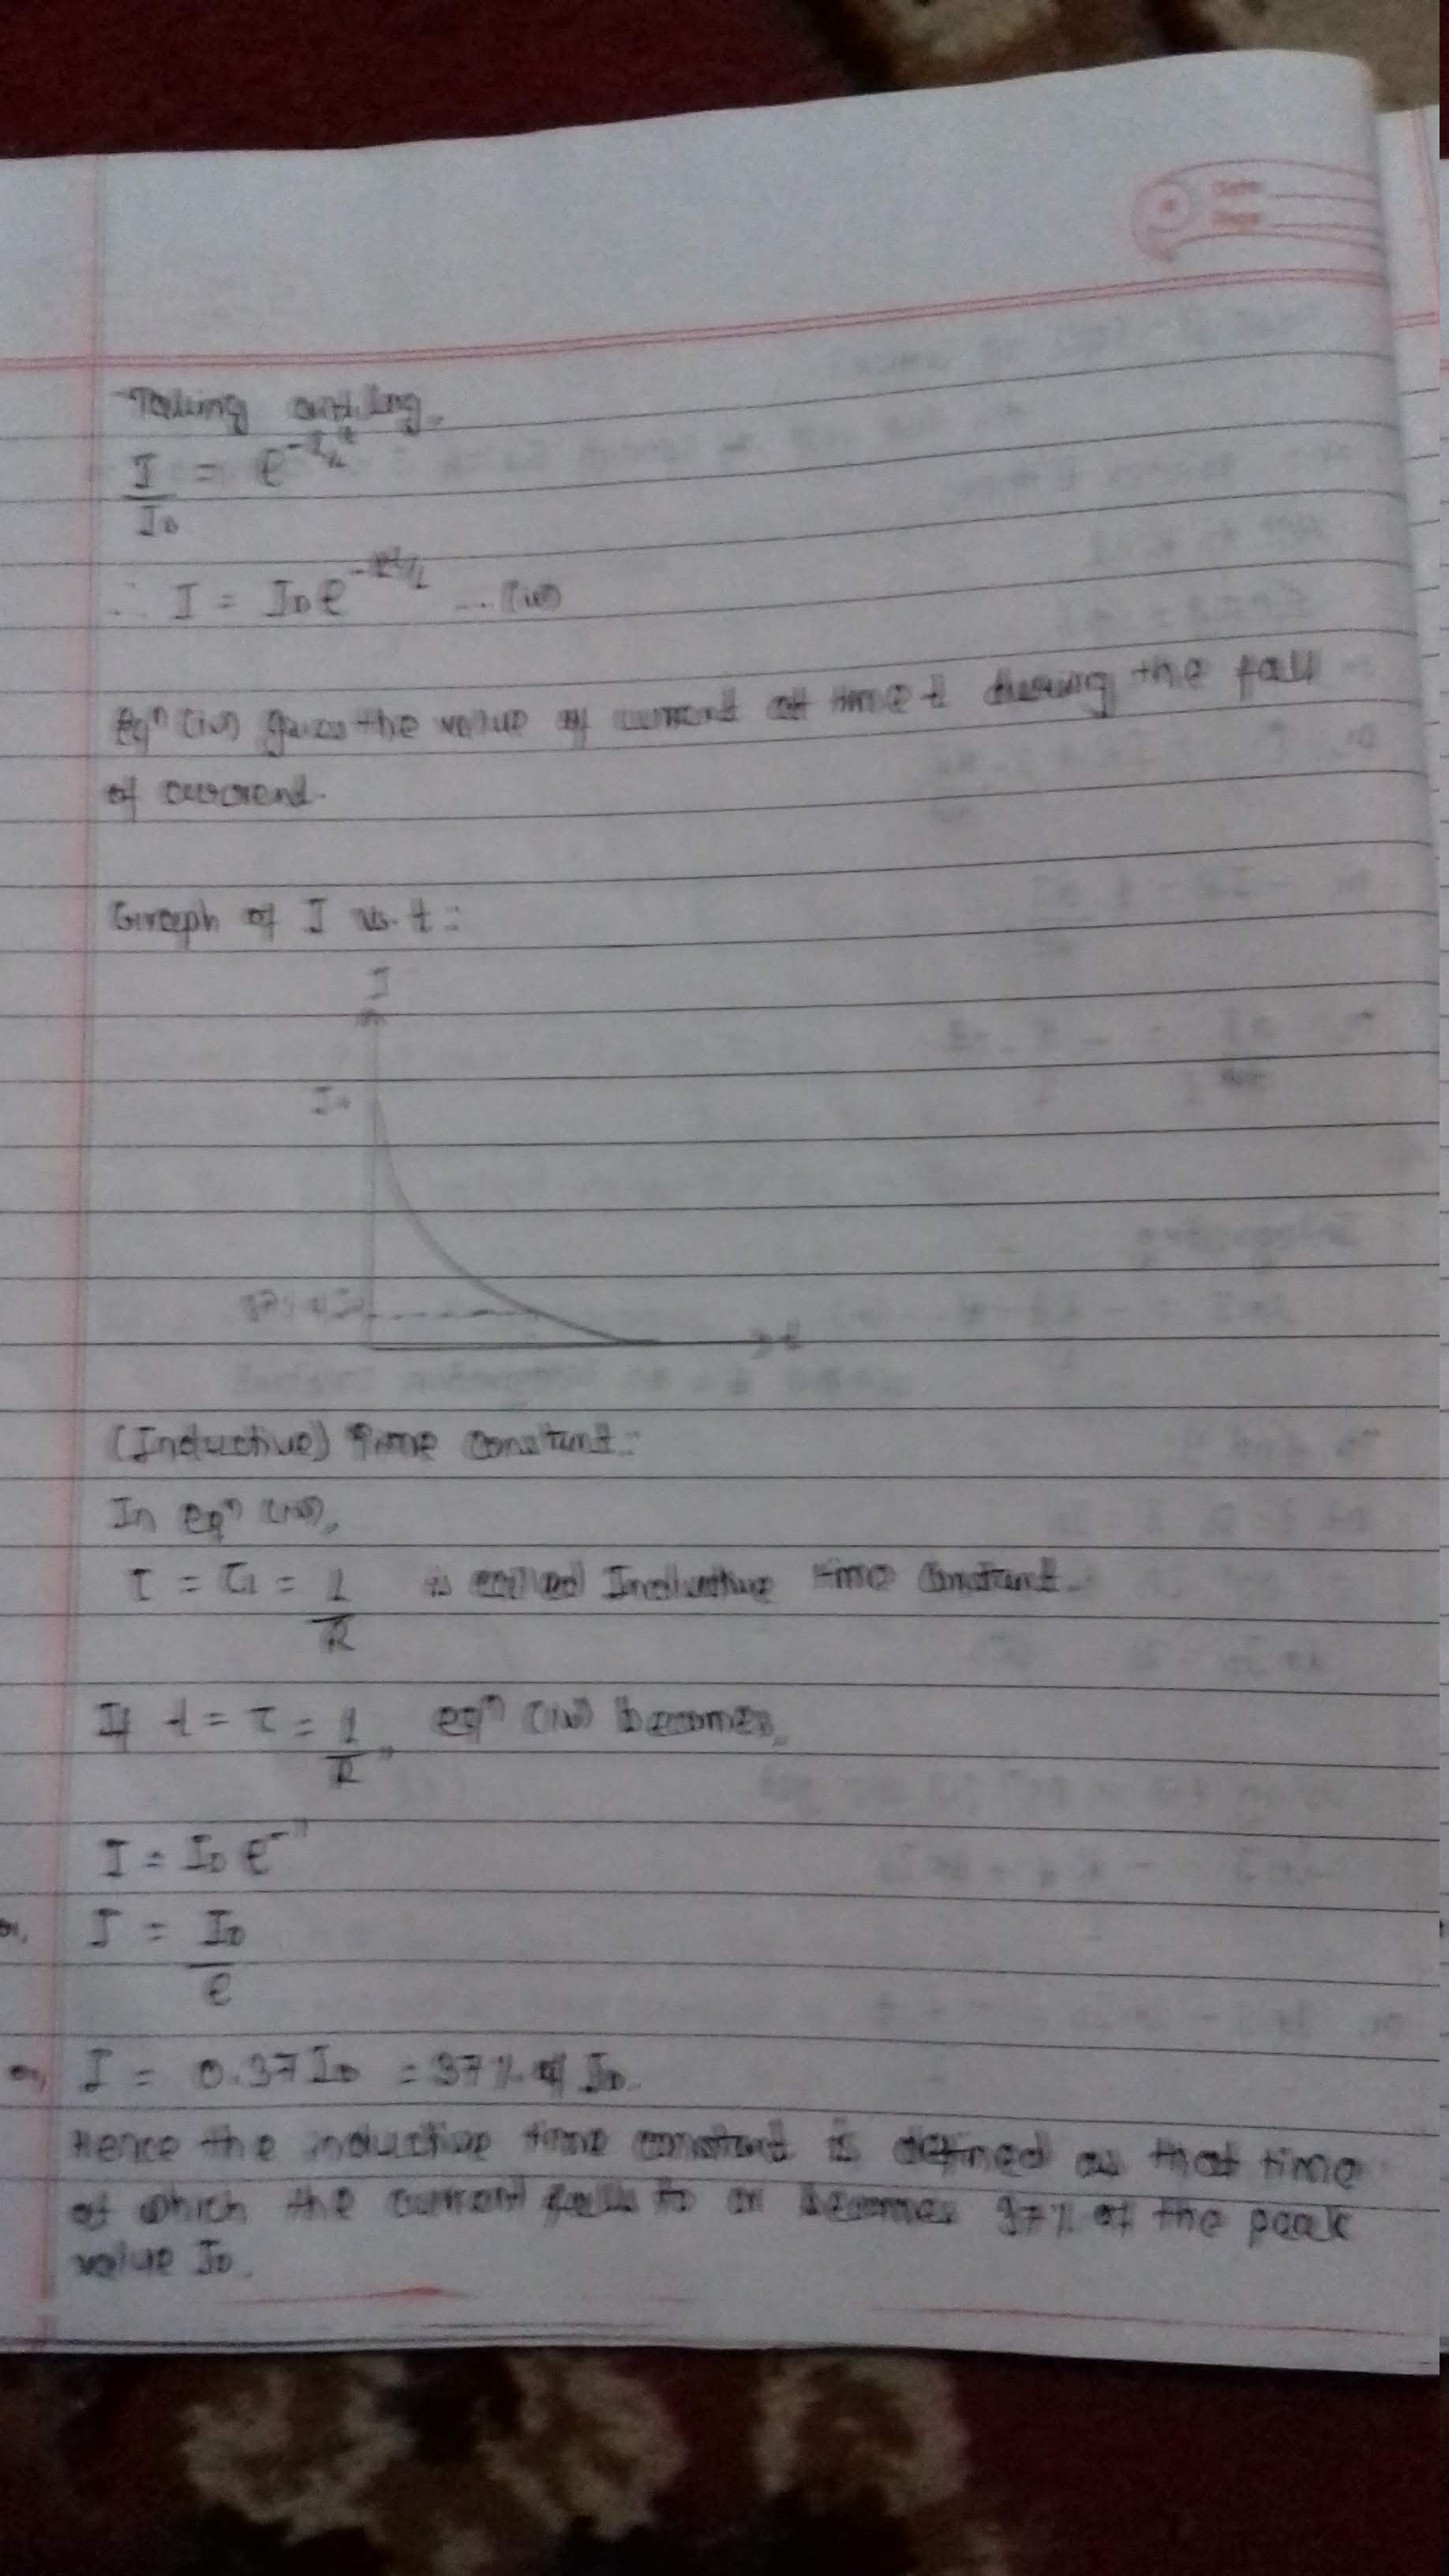 Date
Page
Taking antilog,
I/I₀ = e^(-R/L t)
∴ I = I₀e^(-Rt/L) ... (iv)
eqⁿ (iv) gives the value of current at time t during the fall
of current.
Graph of I vs. t:
I
I₀
37% of I₀
t
(Inductive) Time constant:
In eqⁿ (iv),
τ = τL = L/R is called Inductive time constant.
If t = τ = L/R, eqⁿ (iv) becomes,
I = I₀ e⁻¹
or, I = I₀/e
or, I = 0.37 I₀ = 37% of I₀.
Hence the inductive time constant is defined as that time
at which the current falls to or becomes 37% of the peak
value I₀.